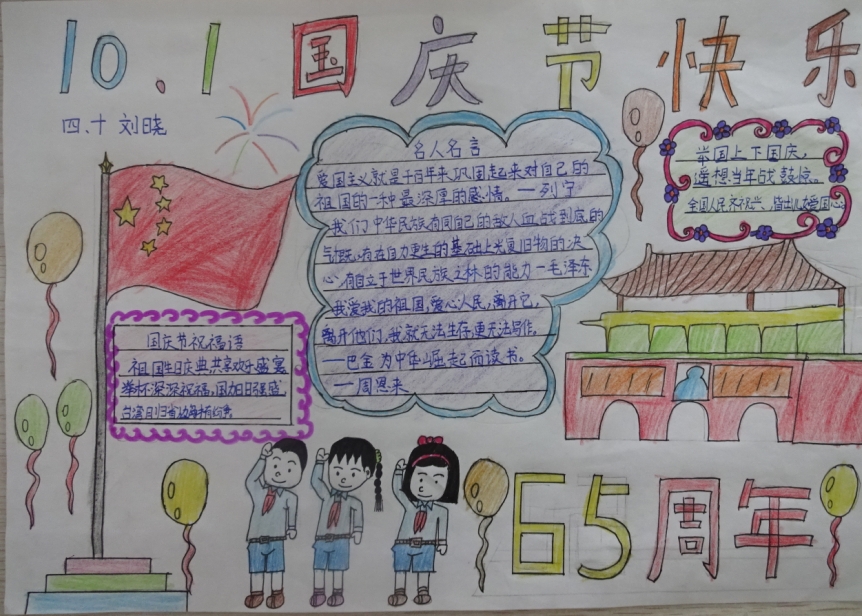 10.1国庆节快乐
四、十 刘晓
名人名言
爱国主义就是千百年来巩固起来对自己的
祖国的一种最深厚的感情。一列宁
我们中华民族有同自己的敌人血战到底的
气概,有在自力更生的基础上光复旧物的决
心,有自立于世界民族之林的能力一毛泽东
我爱我的祖国,爱心人民,离开它,
离开他们,我就无法生存,更无法写作。
一巴金 为中华崛起而读书。
一周恩来
举国上下国庆,
遥想当年战鼓惊。
全国人民齐祝兴、皆出儿女爱国心。
国庆节祝福语
祖国生日庆典共享欢乐盛宴
举杯深深祝福,国力日强盛
65周年